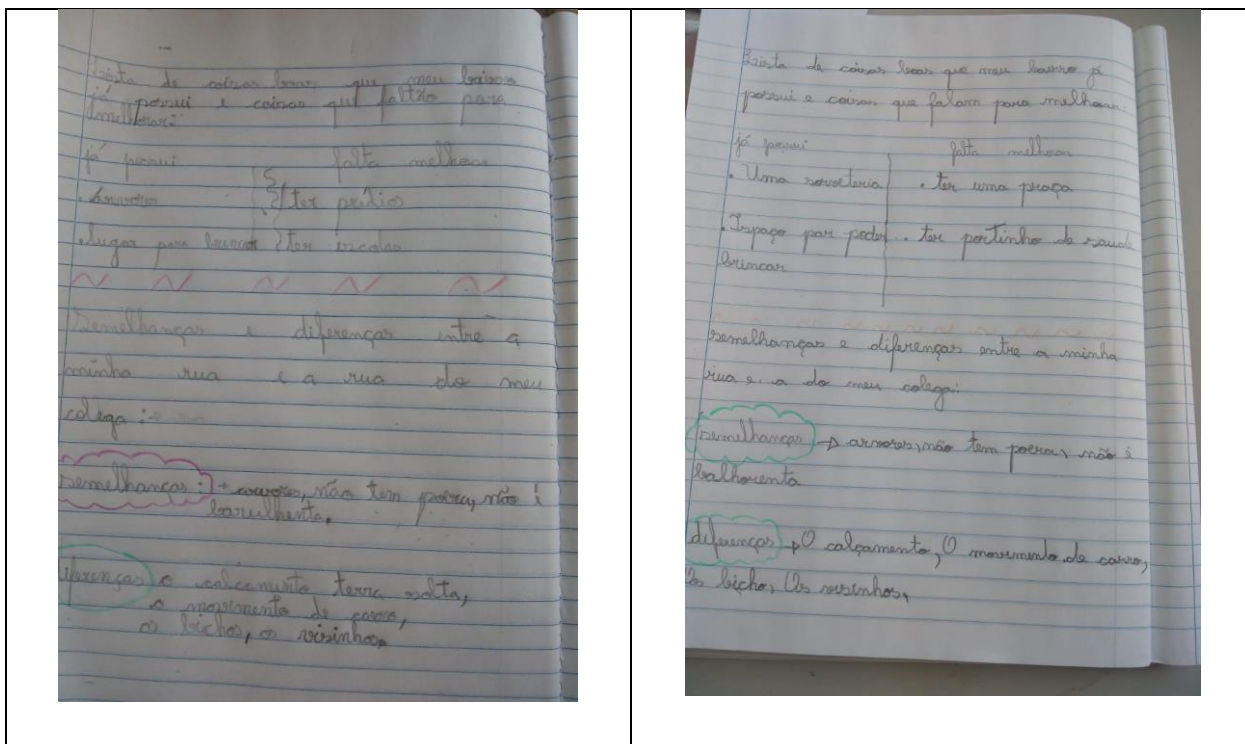 Lista de coisas boas que meu bairro
já possui e coisas que faltão para
melhorar:
já possui falta melhorar
. árvores ter prédios
. lugar para brincar ter escolas
Semelhanças e diferenças entre a
minha rua e a rua do meu
colega :
semelhanças : não tem poeira, não é
barulhenta.
diferenças o calçamento terra solta,
o movimento de carro,
os bichos, os visinhos.
Lista de coisas boas que meu bairro já
possui e coisas que falam para melhoar:
já possui falta melhoar
. Uma sorveteria . ter uma praça
. Ispaço par poder . ter portinho de saude
brincar
semelhanças e diferenças entre a minha
rua e a do meu colega:
semelhanças → arvores, não tem poera, não é
balhorenta
diferenças → O calçamento, O movimento de carro,
Os bichos, Os visinhos,